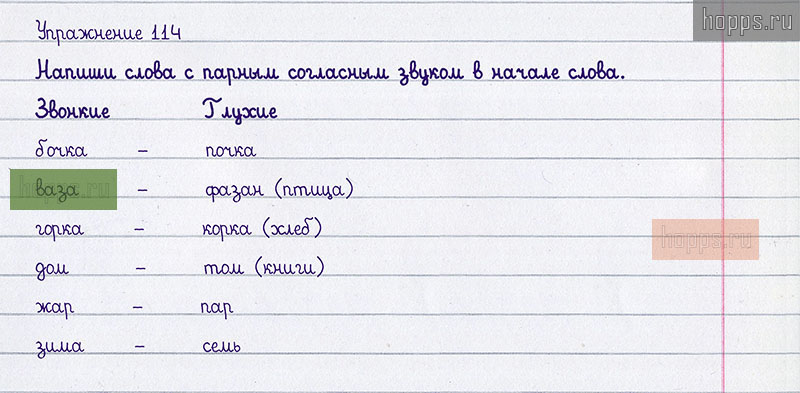 hopps.ru
Упражнение 114
Напиши слова с парным согласным звуком в начале слова.
Звонкие Глухие
бочка – почка
ваза – фазан (птица)
горка – корка (хлеб)
hopps.ru
дом – том (книги)
жар – пар
зима – семь